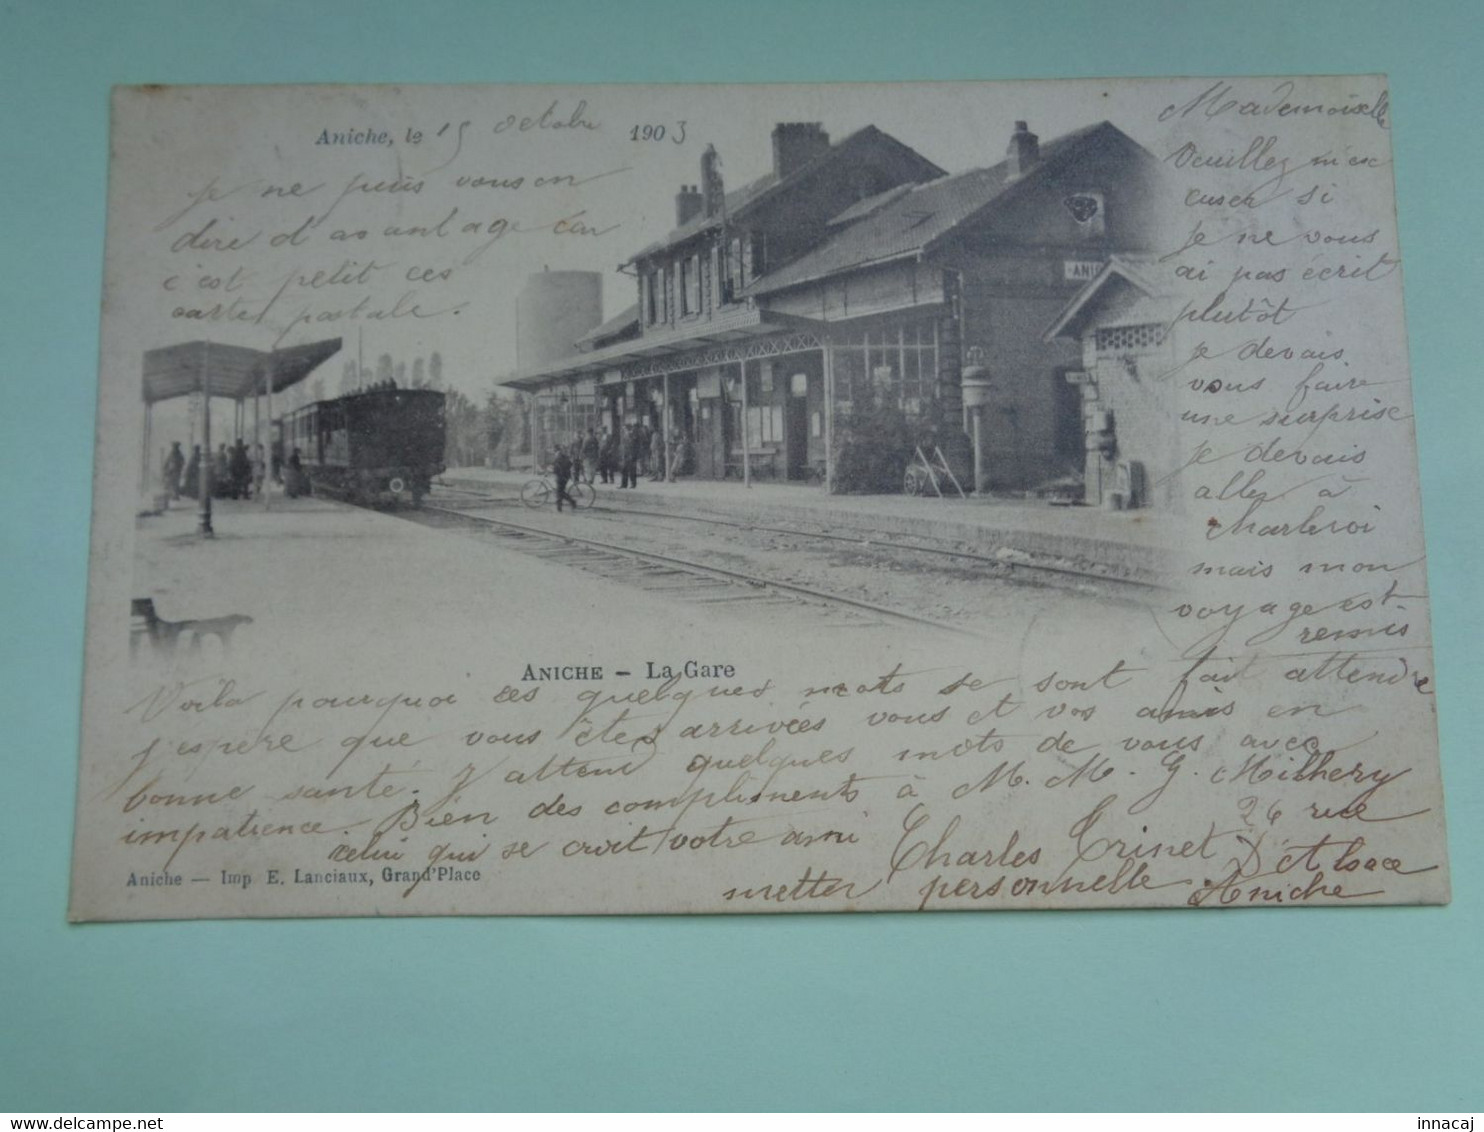 Aniche, le 15 octobre 1903
Mademoiselle
Veuillez m'ex
cuser si
je ne vous
ai pas écrit
plutôt
je devais
vous faire
une surprise
je devais
aller à
Charleroi
mais mon
voyage est
remis
Voila pourquoi ces quelques mots se sont fait attendre
j'espere que vous êtes arrivées vous et vos amis en
bonne santé. J'attend quelques mots de vous avec
impatience. Bien des compliments à M. M. G. Milhery
celui qui se croit votre ami
Charles Trinet
26 rue
D'Alsace
Aniche
metter personnelle
je ne puis vous en
dire d'avantage car
c'est petit ces
cartes postale.
ANICHE
ANICHE – La Gare
Aniche — Imp. E. Lanciaux, Grand'Place
www.delcampe.net
innacaj